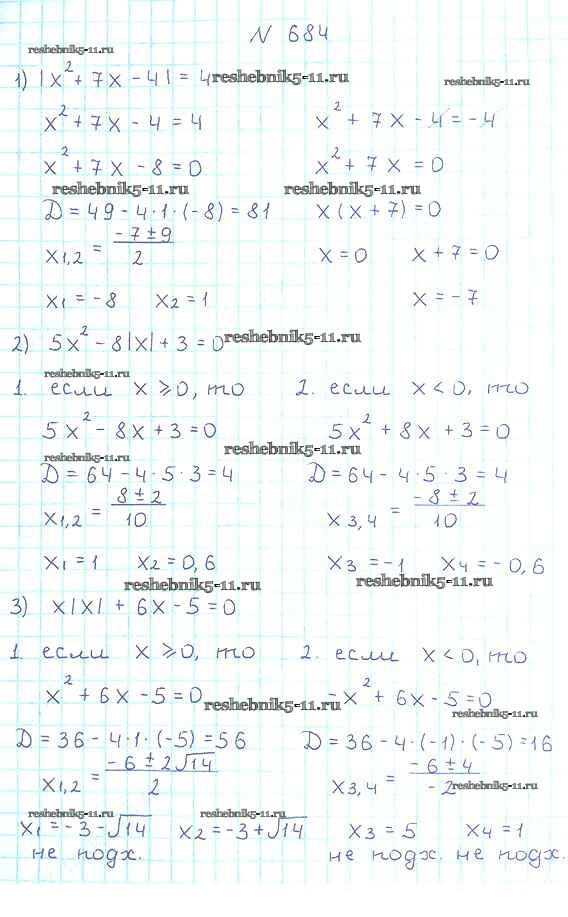 N 684
reshebnik5-11.ru
1) |x² + 7x - 4| = 4 reshebnik5-11.ru reshebnik5-11.ru
x² + 7x - 4 = 4 x² + 7x - 4 = -4
x² + 7x - 8 = 0 x² + 7x = 0
reshebnik5-11.ru reshebnik5-11.ru
D = 49 - 4·1·(-8) = 81 x(x + 7) = 0
x1,2 = (-7 ± 9)/2 x = 0 x + 7 = 0
x1 = -8 x2 = 1 x = -7
2) 5x² - 8|x| + 3 = 0 reshebnik5-11.ru
reshebnik5-11.ru
1. если x ≥ 0, то 2. если x < 0, то
5x² - 8x + 3 = 0 5x² + 8x + 3 = 0
reshebnik5-11.ru reshebnik5-11.ru
D = 64 - 4·5·3 = 4 D = 64 - 4·5·3 = 4
x1,2 = (8 ± 2)/10 x3,4 = (-8 ± 2)/10
x1 = 1 x2 = 0,6 x3 = -1 x4 = -0,6
reshebnik5-11.ru reshebnik5-11.ru
3) x|x| + 6x - 5 = 0
1. если x ≥ 0, то 2. если x < 0, то
x² + 6x - 5 = 0 -x² + 6x - 5 = 0
reshebnik5-11.ru reshebnik5-11.ru
D = 36 - 4·1·(-5) = 56 D = 36 - 4·(-1)·(-5) = 16
x1,2 = (-6 ± 2√14)/2 x3,4 = (-6 ± 4)/-2 reshebnik5-11.ru
reshebnik5-11.ru reshebnik5-11.ru
x1 = -3 - √14 x2 = -3 + √14 x3 = 5 x4 = 1
не подх. не подх. не подх.